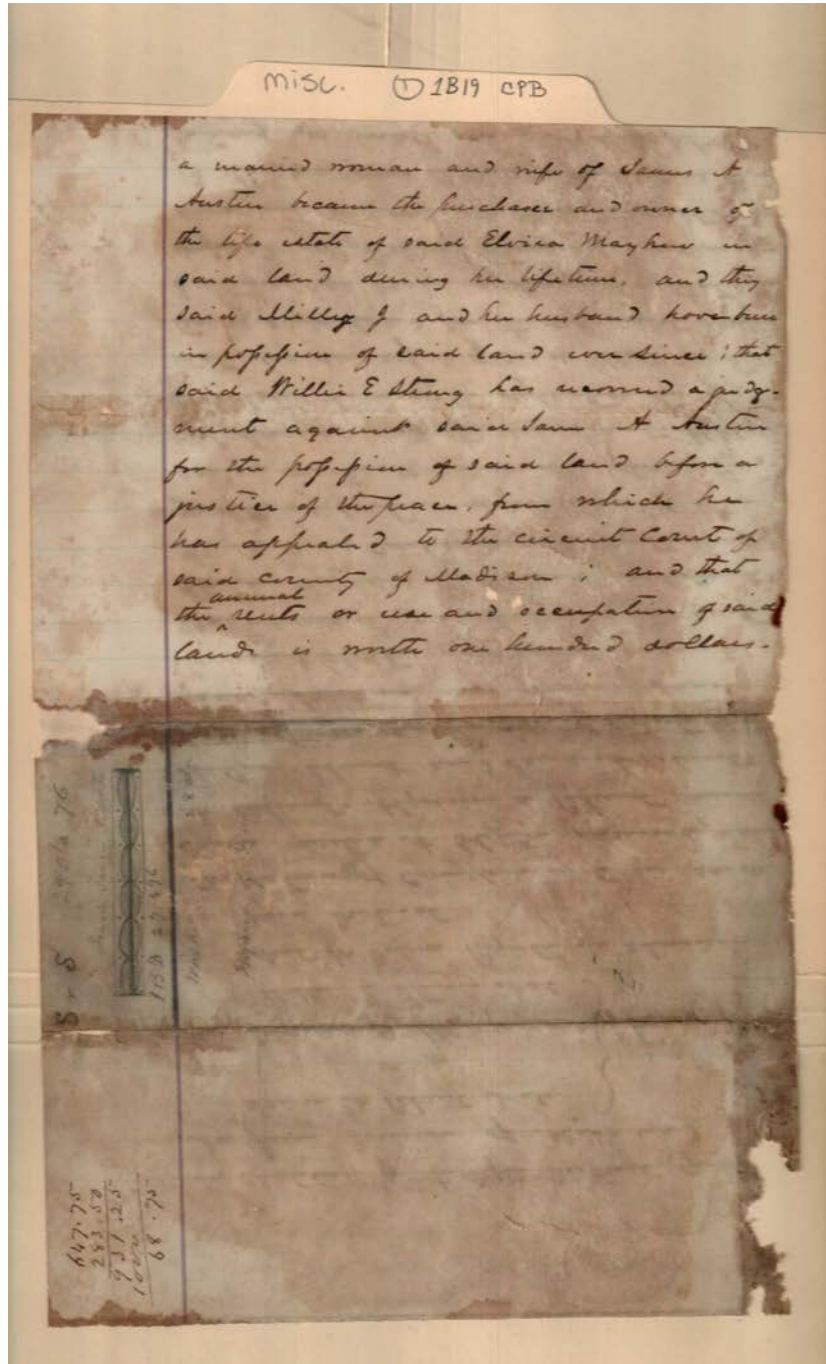 misc. ① 1B19 CPB
a married woman and wife of James A
Austin became the purchaser and owner of
the life estate of said Elvira Mayhew in
said land during her lifetime, and they
said Milly J and her husband have been
in possession of said land ever since; that
said Willie E Strong has recovered a judg-
ment against said James A Austin
for the possession of said land before a
justice of the peace, from which he
has appealed to the circuit Court of
said county of Madison; and that
the annual rents or use and occupation of said
lands is worth one hundred dollars.
S n S
76
647.75
283.50
931.25
1000
68.75